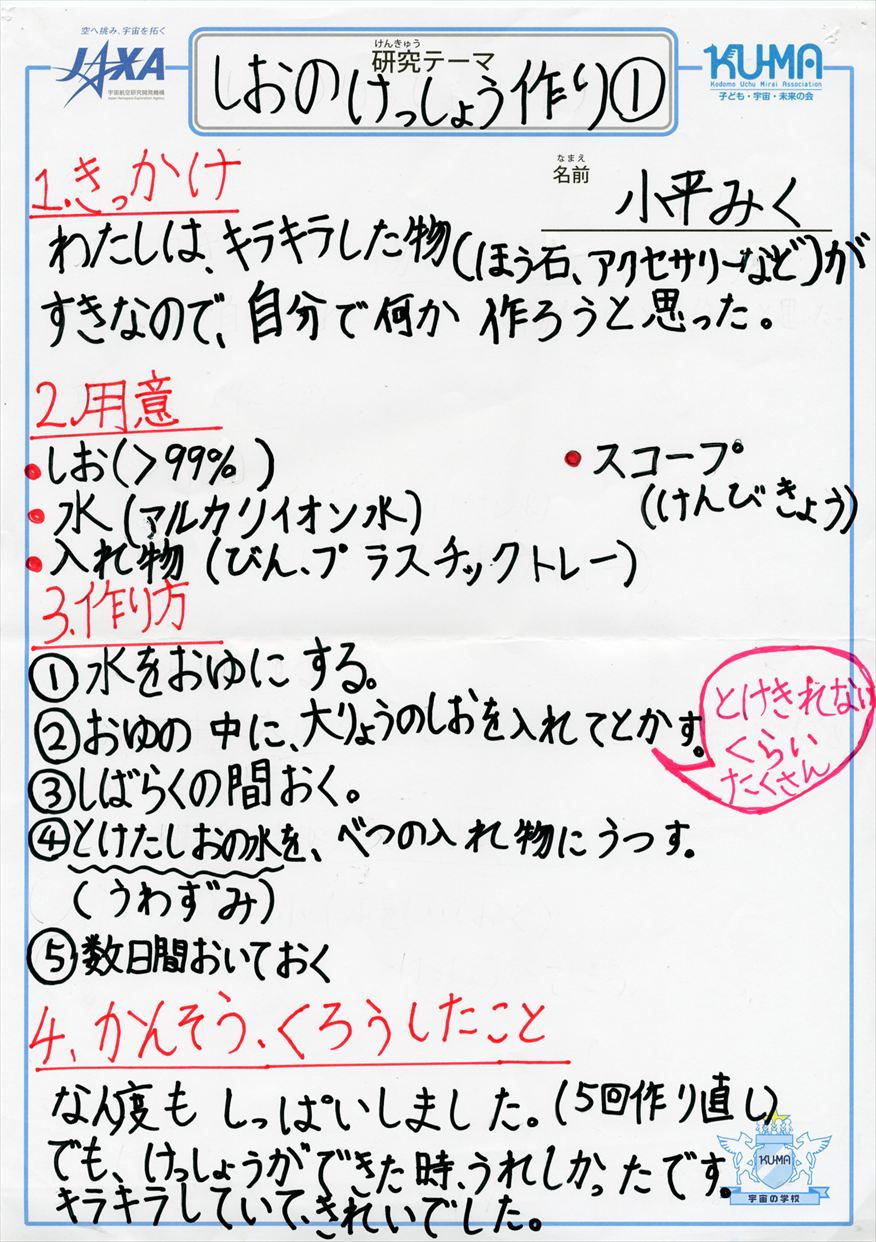 空へ挑み、宇宙を拓く
JAXA
宇宙航空研究開発機構
Japan Aerospace Exploration Agency
けんきゅう
研究テーマ
しおのけっしょう作り①
KU-MA
Kodomo Uchu Mirai Association
子ども・宇宙・未来の会
1.きっかけ
なまえ
名前
小平みく
わたしは、キラキラした物(ほう石、アクセサリーなど)が
すきなので、自分で何か作ろうと思った。
2.用意
・しお(>99%)
・スコープ
(けんびきょう)
・水(アルカリイオン水)
・入れ物(びん、プラスチックトレー)
3.作り方
①水をおゆにする。
②おゆの中に、大りょうのしおを入れてとかす。
とけきれない
くらい
たくさん
③しばらくの間おく。
④とけたしおの水を、べつの入れ物にうつす。
(うわずみ)
⑤数日間おいておく
4、かんそう、くろうしたこと
なん度もしっぱいしました。(5回作り直し)
でも、けっしょうができた時、うれしかったです。
キラキラしていて、きれいでした。
KU-MA
宇宙の学校